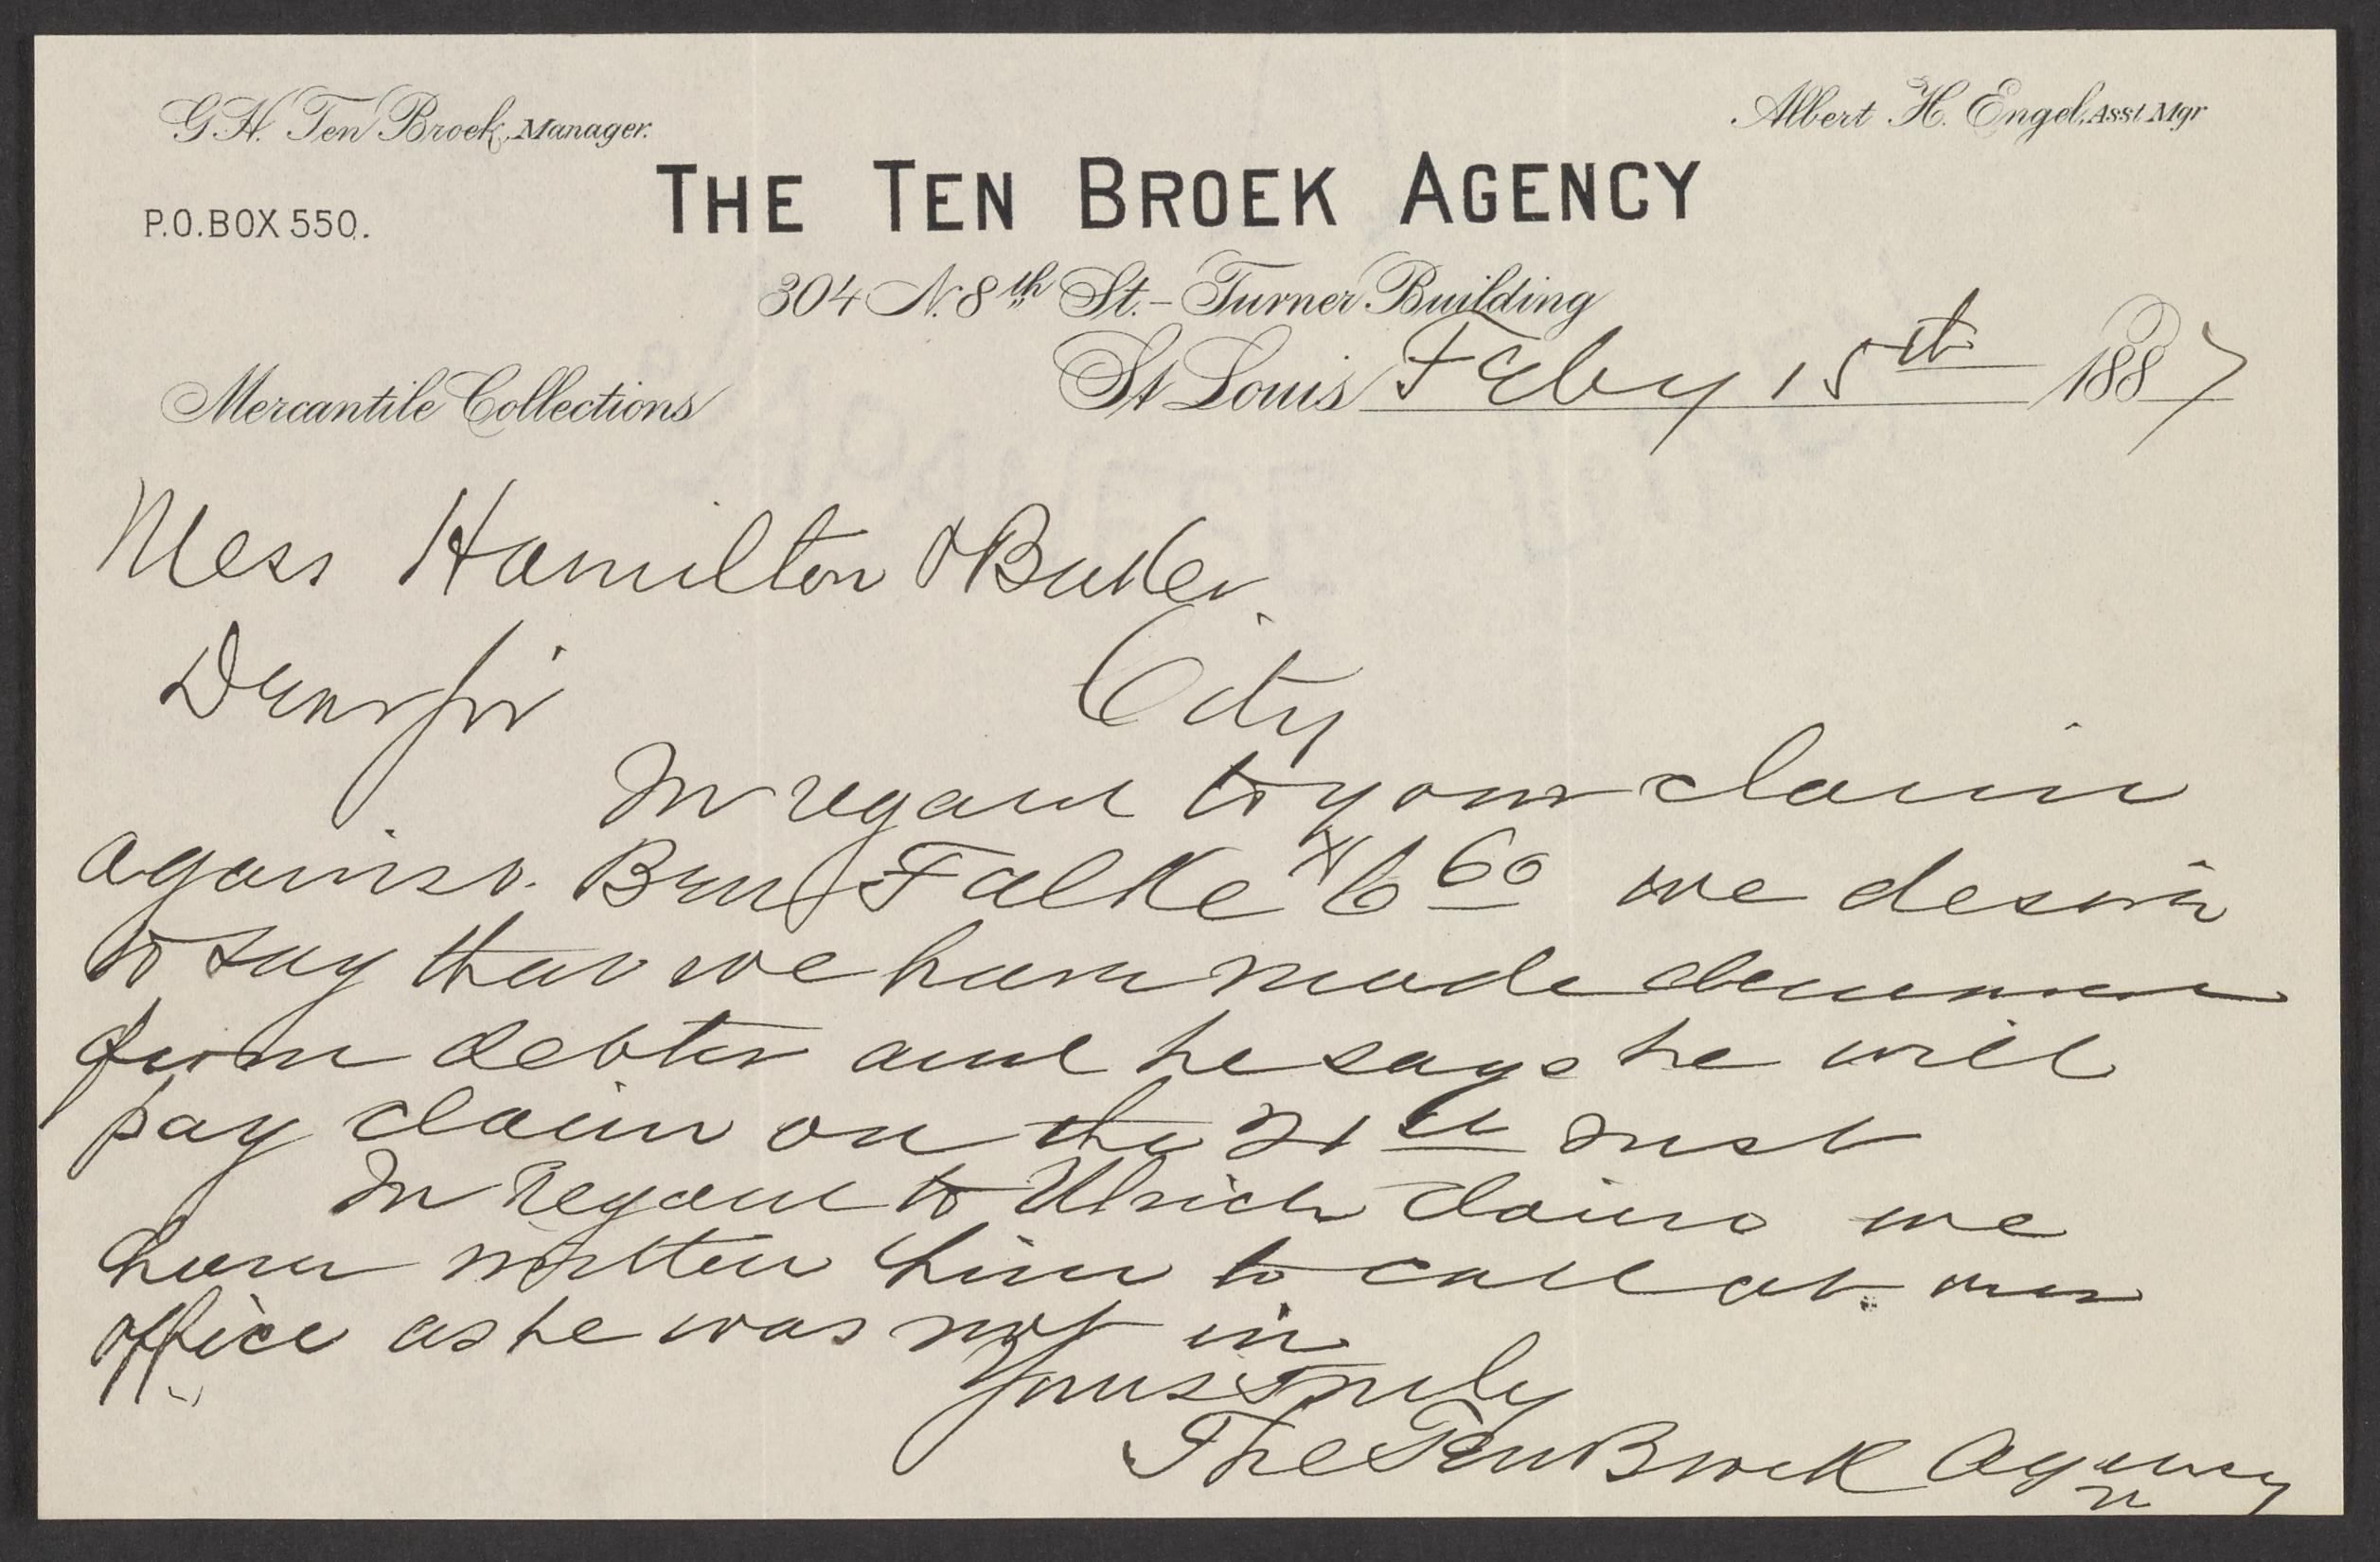 G.H. Ten Broek, Manager.
Albert H. Engel, Asst Mgr
THE TEN BROEK AGENCY
P.O. BOX 550.
304 N. 8th St. – Turner Building
Mercantile Collections
St Louis Feby 15th 1887
Mess Hamilton & Butler.
Dear Sir City
In regard to your claim
against. Falke $6 60 we desire
to say that we have made demand
from debtor and he says he will
pay claim on the 21st inst
In regard to Ulrich claim we
have written him to call at our
office as he was not in
Yours Truly
The Ten Broek Agency